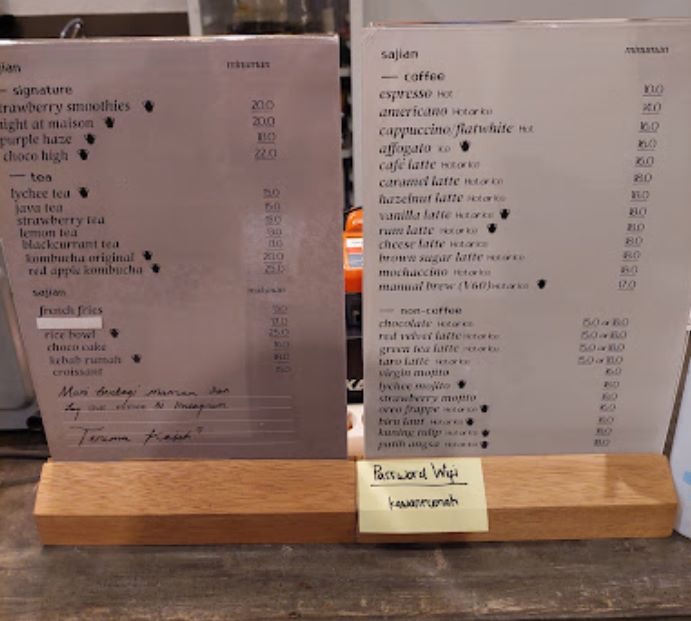 sajian minuman
— signature
strawberry smoothies 20.0
night at maison 20.0
purple haze 18.0
choco high 22.0
— tea
lychee tea 15.0
java tea 15.0
strawberry tea 15.0
lemon tea
blackcurrant tea
kombucha original 20.0
red apple kombucha 25.0
sajian makanan
french fries
rice bowl 25.0
choco cake
kebab rumah
croissant
Mari berbagi momen dan
Terima Kasih
sajian minuman
— coffee
espresso Hot 10.0
americano Hot or Ice 14.0
cappuccino/flatwhite Hot 16.0
affogato Ice 16.0
café latte Hot or Ice 16.0
caramel latte Hot or Ice 18.0
hazelnut latte Hot or Ice 18.0
vanilla latte Hot or Ice 18.0
rum latte Hot or Ice 18.0
cheese latte Hot or Ice 18.0
brown sugar latte Hot or Ice 18.0
mochaccino Hot or Ice 18.0
manual brew (V60) Hot or Ice 17.0
— non-coffee
chocolate Hot or Ice 15.0 or 18.0
red velvet latte Hot or Ice 15.0 or 18.0
green tea latte Hot or Ice 15.0 or 18.0
taro latte Hot or Ice 15.0 or 18.0
virgin mojito 16.0
lychee mojito 18.0
strawberry mojito 18.0
oreo frappe Hot or Ice 18.0
biru laut Hot or Ice 18.0
kuning tulip Hot or Ice 18.0
putih angsa Hot or Ice 18.0
Password Wifi
kawanrumah